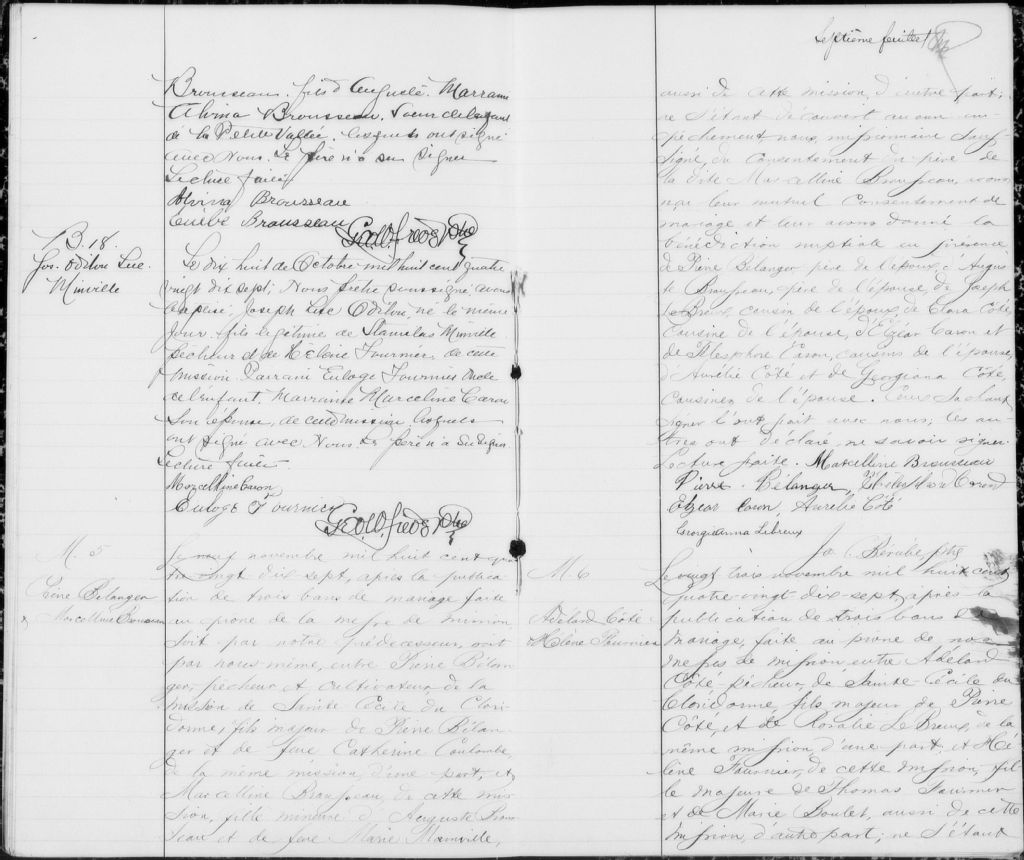 Brousseau. fils d'Auguste. Marraine
Alvina Brousseau. Soeur de l'enfant
de la Petite Vallée, lesquels ont signé
avec Nous. Le père n'a su signer
Lecture faite
Alvina Brousseau
Brousseau
Ptre
B. 18.
Jos. Odilon Luc.
Minville
Le dix huit de Octobre mil huit cent quatre
vingt dix sept; Nous prêtre soussigné, avons
baptisé, Joseph Luc Odilon, né le même
jour, fils légitime de Stanislas Minville
pêcheur & de Hélène Fournier, de cette
mission. Parrain Euloge Fournier Oncle
de l'enfant. Marraine Marceline Caron
Son épouse, de cette mission lesquels
ont signé avec Nous. Le père n'a su signer
Lecture faite.
Marcelline Caron
Euloge Fournier
Ptre
M. 5
Pierre Bélanger
& Marcelline Brousseau
Le neuf novembre mil huit cent qua-
tre vingt dix sept, après la publica-
tion de trois bans de mariage faite
au prône de la messe de mission
soit par notre prédecesseur, soit
par nous même, entre Pierre Bélan-
ger, pêcheur et cultivateur de la
mission de Sainte Cécile du Clori-
dorme, fils majeur de Pierre Bélan-
ger et de feue Catherine Coulombe,
de la même mission, d'une part, et
Marcelline Brousseau, de cette mis-
sion, fille mineure d'Auguste Brous-
seau et de feue Marie Mainville,
Septième feuillet
aussi de cette mission, d'autre part;
ne s'étant découvert aucun em-
pêchement nous, missionnaire sous-
signé, du consentement du père de
la dite Marcelline Brousseau, avons
reçu leur mutuel consentement de
mariage et leur avons donné la
bénédiction nuptiale en présence
de Pierre Bélanger père de l'époux, d'Augus-
te Brousseau, père de l'épouse, de Joseph
LeBreux, cousin de l'époux, de Clara Côté,
cousine de l'épouse, d'Elzéar Caron et
de Télesphore Caron, cousins de l'épouse,
d'Aurélie Côté et de Georgiana Côté,
cousines de l'épouse. Ceux sachant
signer l'ont fait avec nous; les au-
tres ont déclaré ne savoir signer.
Lecture faite. Marcelline Brousseau
Pierre Bélanger,
Elzear Caron, Aurélie Côté
Georgianna Lebreux
Bérubé ptre
M. 6
Abélard Côté
& Hélène Fournier
Le vingt trois novembre mil huit cent
quatre-vingt dix-sept, après la
publication de trois bans de
mariage, faite au prône de nos
messes de mission entre Abélard
Côté pêcheur, de Sainte-Cécile du
Cloridorme, fils majeur de Pierre
Côté, et de Rosalie LeBreux, de la
même mission, d'une part, et Hé-
lène Fournier, de cette mission, fil-
le majeure de Thomas Fournier
et de Marie Boulet, aussi de cette
mission, d'autre part; ne s'étant